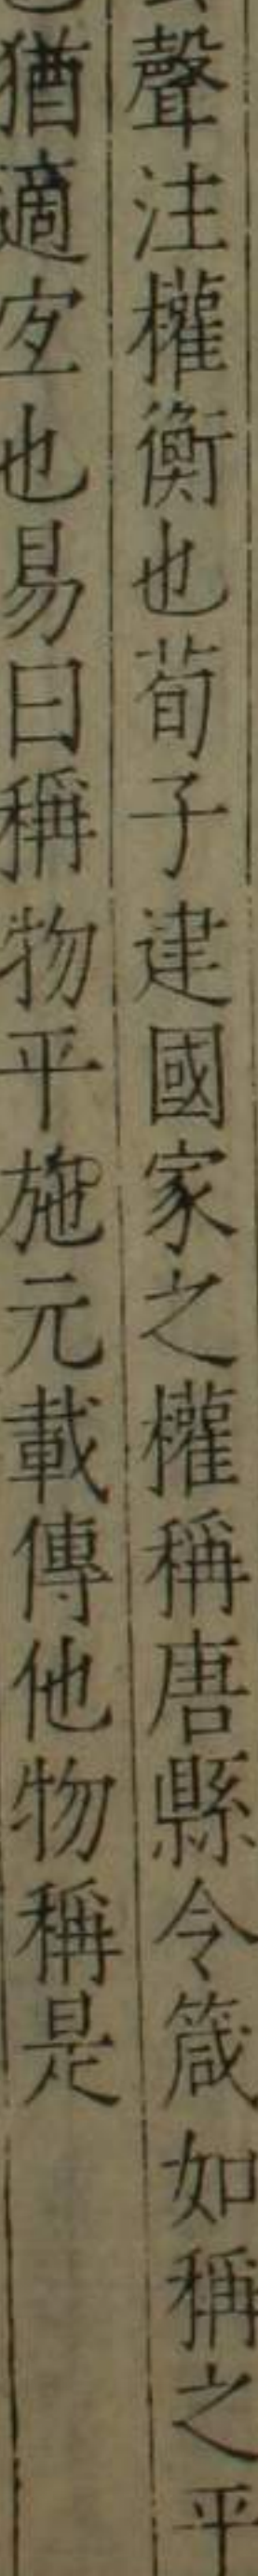 聲注權衡也荀子建國家之權稱唐縣令箴如稱之平
猶適㝎也易曰稱物平施元載傳他物稱是